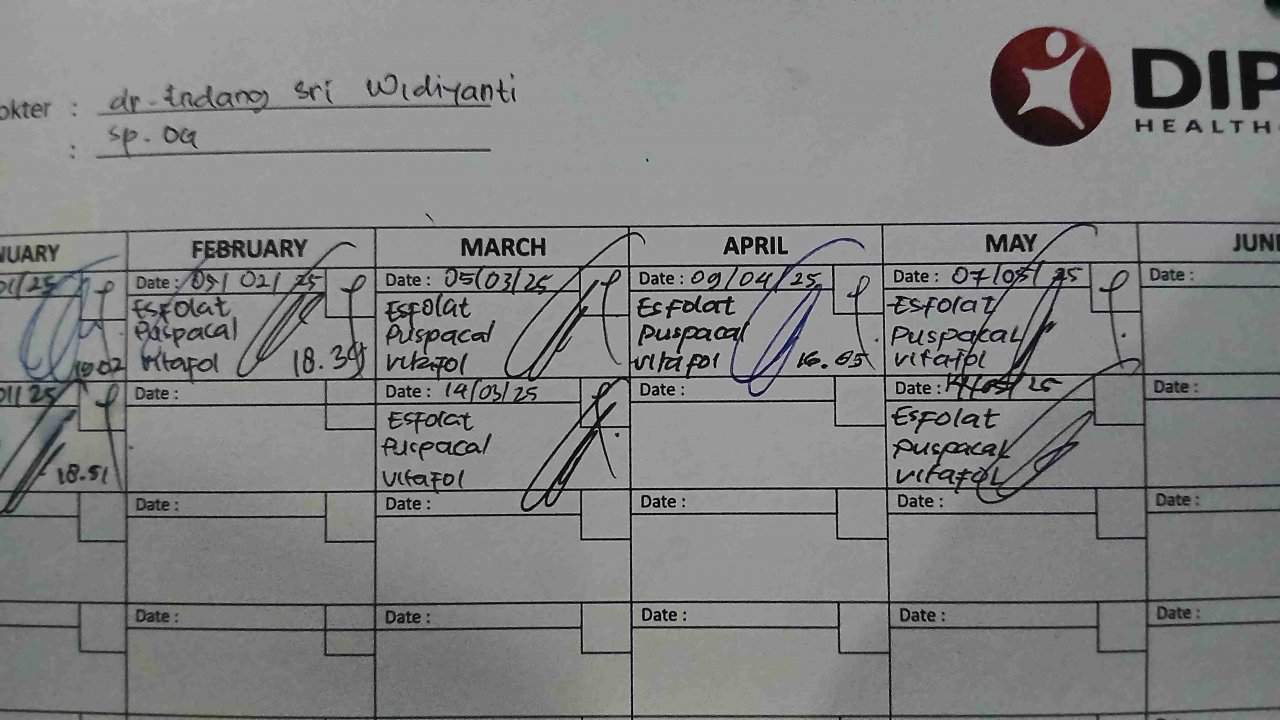 okter : dr. Endang Sri Widiyanti
: sp. OG
DIP
HEALTH
NUARY FEBRUARY MARCH APRIL MAY JUN
01/25 Date : 05/02/25 Date : 05/03/25 Date : 09/04/25 Date : 07/05/25 Date :
Esfolat Esfolat Esfolat Esfolat
Puspacal Puspacal Puspacal Puspacal
19.02 Vitafol 18.39 Vitafol Vitafol 16.05 Vitafol
01/25 Date : Date : 14/03/25 Date : Date : 14/05/25 Date :
Esfolat Esfolat
Puspacal Puspacal
18.51 Vitafol Vitafol
Date : Date : Date : Date : Date :
Date : Date : Date : Date : Date :